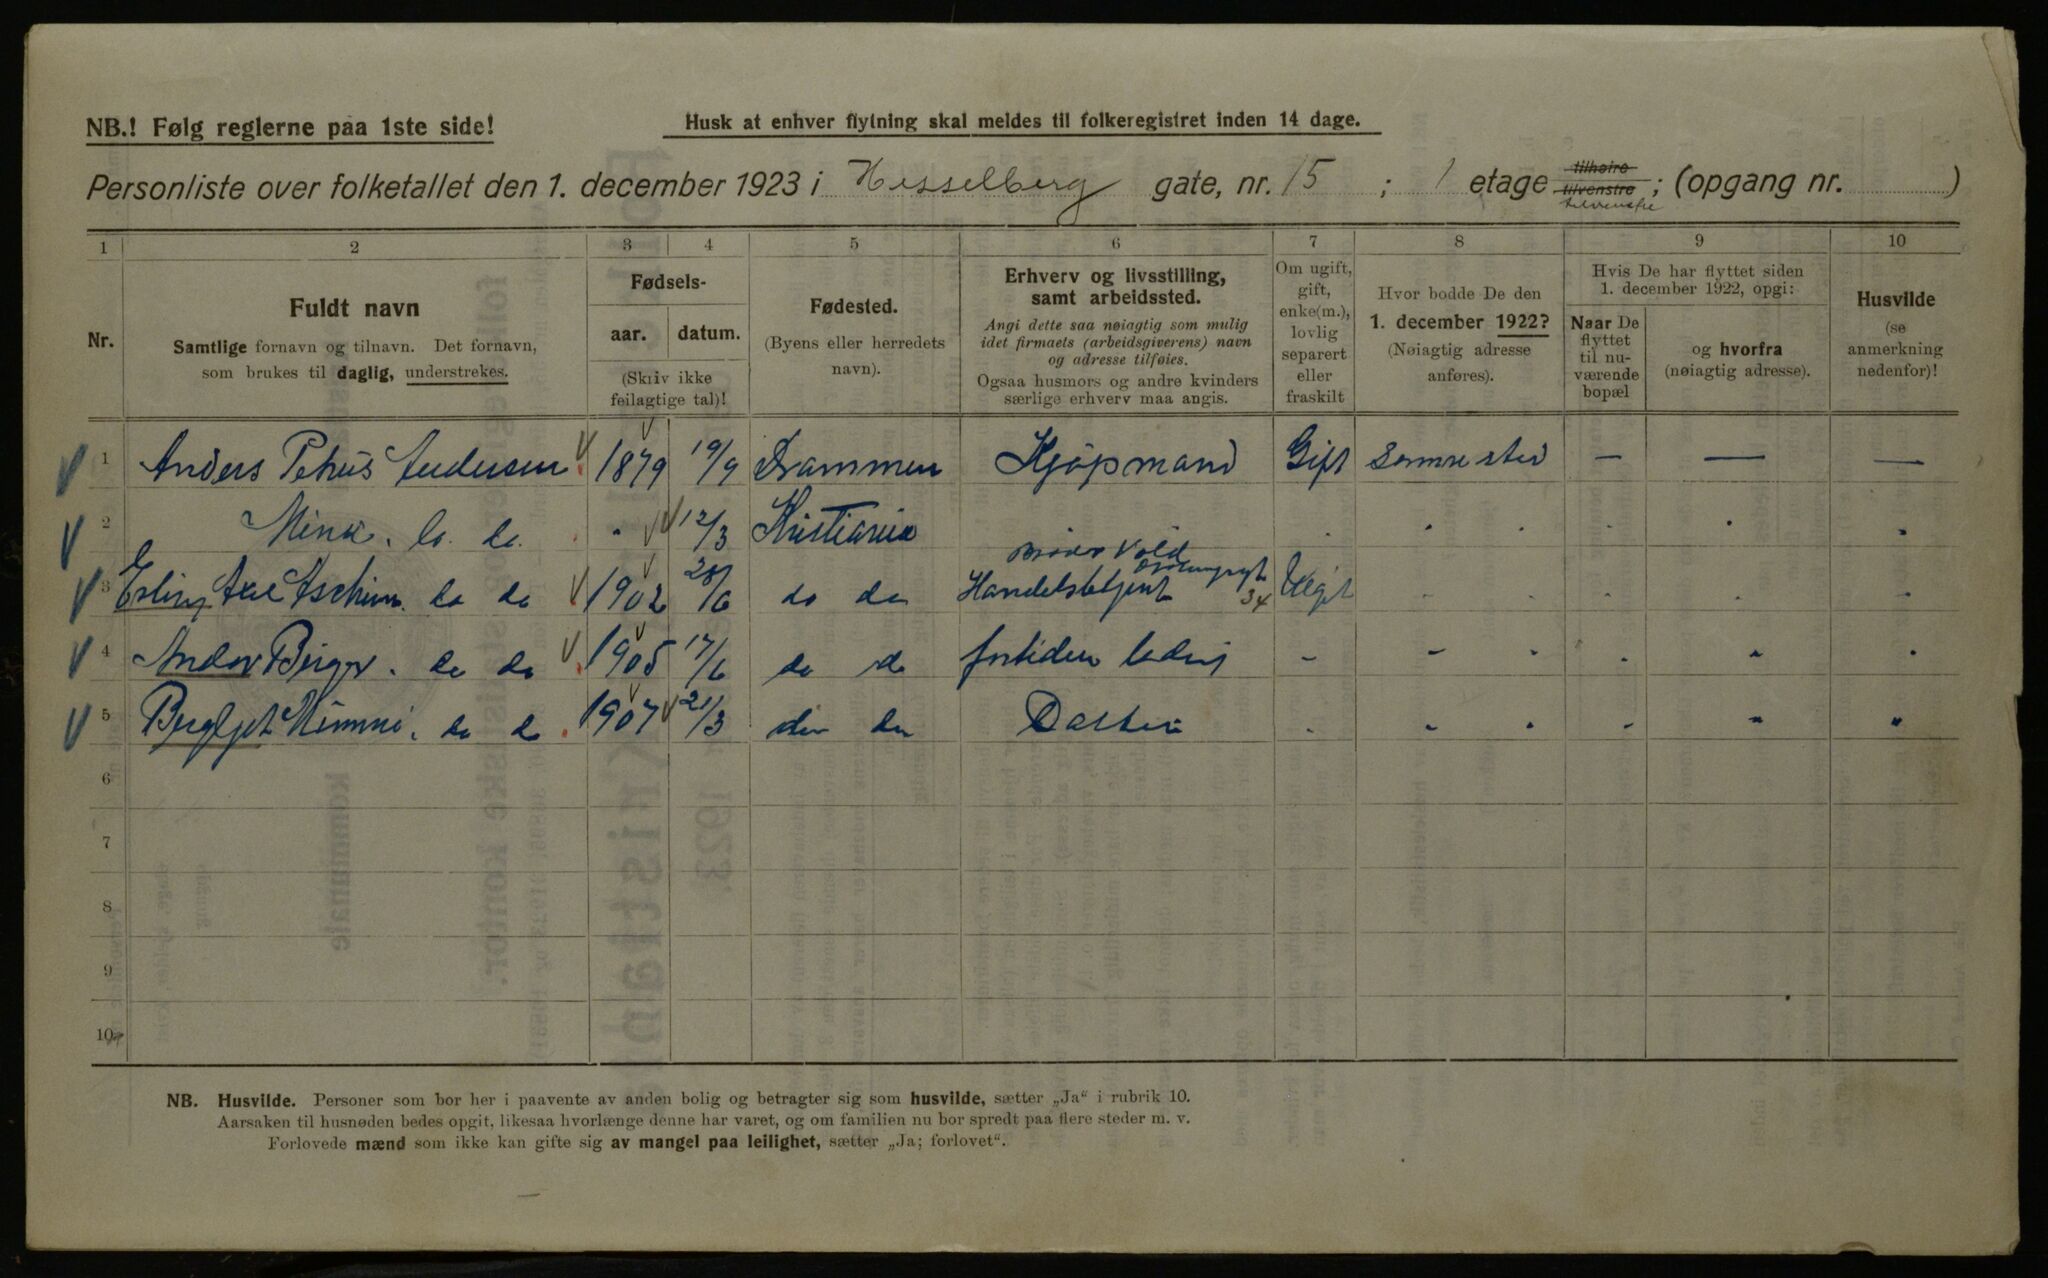 NB.! Følg reglerne paa 1ste side!
Husk at enhver flytning skal meldes til folkeregistret inden 14 dage.
Personliste over folketallet den 1. december 1923 i Hesselberg gate, nr. 15 ; 1 etage tilhøire tilvenstre tilvenstre ; (opgang nr. )
1 2 3 4 5 6 7 8 9 10
Nr.
Fuldt navn
Samtlige fornavn og tilnavn. Det fornavn,
som brukes til daglig, understrekes.
Fødsels-
aar. datum.
(Skriv ikke
feilagtige tal)!
Fødested.
(Byens eller herredets
navn).
Erhverv og livsstilling,
samt arbeidssted.
Angi dette saa nøiagtig som mulig
idet firmaets (arbeidsgiverens) navn
og adresse tilføies.
Ogsaa husmors og andre kvinders
særlige erhverv maa angis.
Om ugift,
gift,
enke(m.),
lovlig
separert
eller
fraskilt
Hvor bodde De den
1. december 1922?
(Nøiagtig adresse
anføres).
Hvis De har flyttet siden
1. december 1922, opgi:
Naar De
flyttet
til nu-
værende
bopæl
og hvorfra
(nøiagtig adresse).
Husvilde
(se
anmerkning
nedenfor)!
1 Anders Petrus Andersen 1879 19/9 Drammen Kjøpmand Gift Samme sted — — —
2 Mina do. do. " 12/3 Kristiania
3 Erling Axel do do 1902 28/6 do do Handelsbetjent 34 Ugift
4 Andor Birger. do do 1905 17/6 do do fortiden ledig
5 Bergljot Mimmi. do do 1907 21/3 do do Datter
6
7
8
9
10
NB. Husvilde. Personer som bor her i paavente av anden bolig og betragter sig som husvilde, sætter „Ja“ i rubrik 10.
Aarsaken til husnøden bedes opgit, likesaa hvorlænge denne har varet, og om familien nu bor spredt paa flere steder m. v.
Forlovede mænd som ikke kan gifte sig av mangel paa leilighet, sætter „Ja; forlovet“.